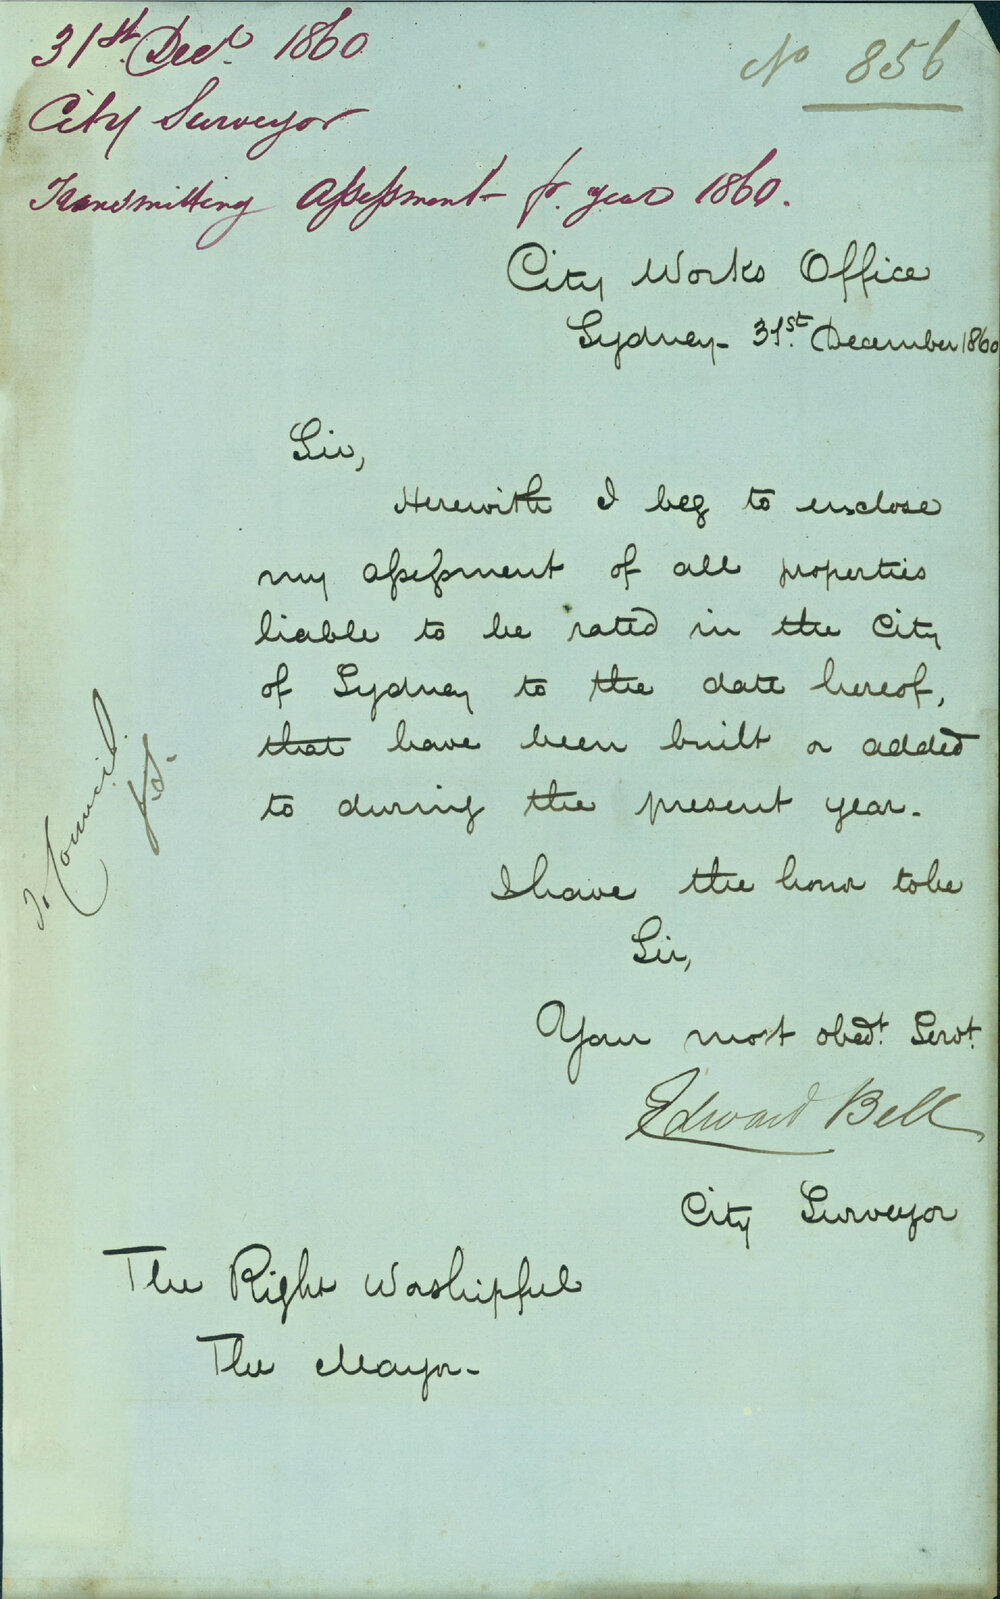 31st Decr 1860
No 856
City Surveyor
Transmitting Assessment for year 1860.
City Works Office
Sydney- 31st December 1860
Sir,
Herewith I beg to enclose
my assessment of all properties
liable to be rated in the City
of Sydney to the date hereof,
that have been built or added
to during the present year.
I have the honor to be
Sir,
Your most obedt Servt
Edward Bell
City Surveyor
The Right Worshipful
The Mayor-
To Council.